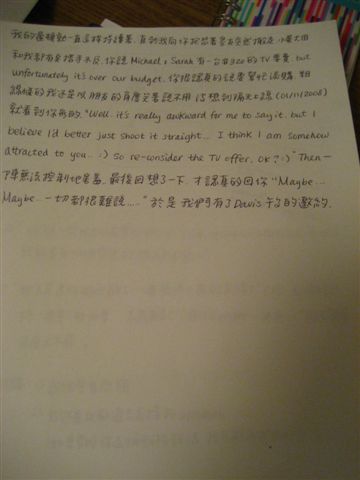 我的感情動一直這樣持續著,直到我向你抱怨著室友突然搬走,小葉太田
和我都有拿措手不及,你說 Michael & Sarah 有一台 $320 的 TV 要賣, but
unfortunately it's over our budget. 你很認真的說要幫忙湊錢,粗
線條的我還是以朋友的角度笑著說不用,沒想到隔天上線 (01/11/2008)
就看到你那句 "Well, it's really awkward for me to say it, but I
believe I'd better just shoot it straight... I think I am somehow
attracted to you.. :) So re-consider the TV offer, OK? :)" Then 一
陣無法控制地害羞,最後回想了一下,才認真的回你 "Maybe...
Maybe... 一切都很難說....." 於是我們有了 Davis 午的邀約.